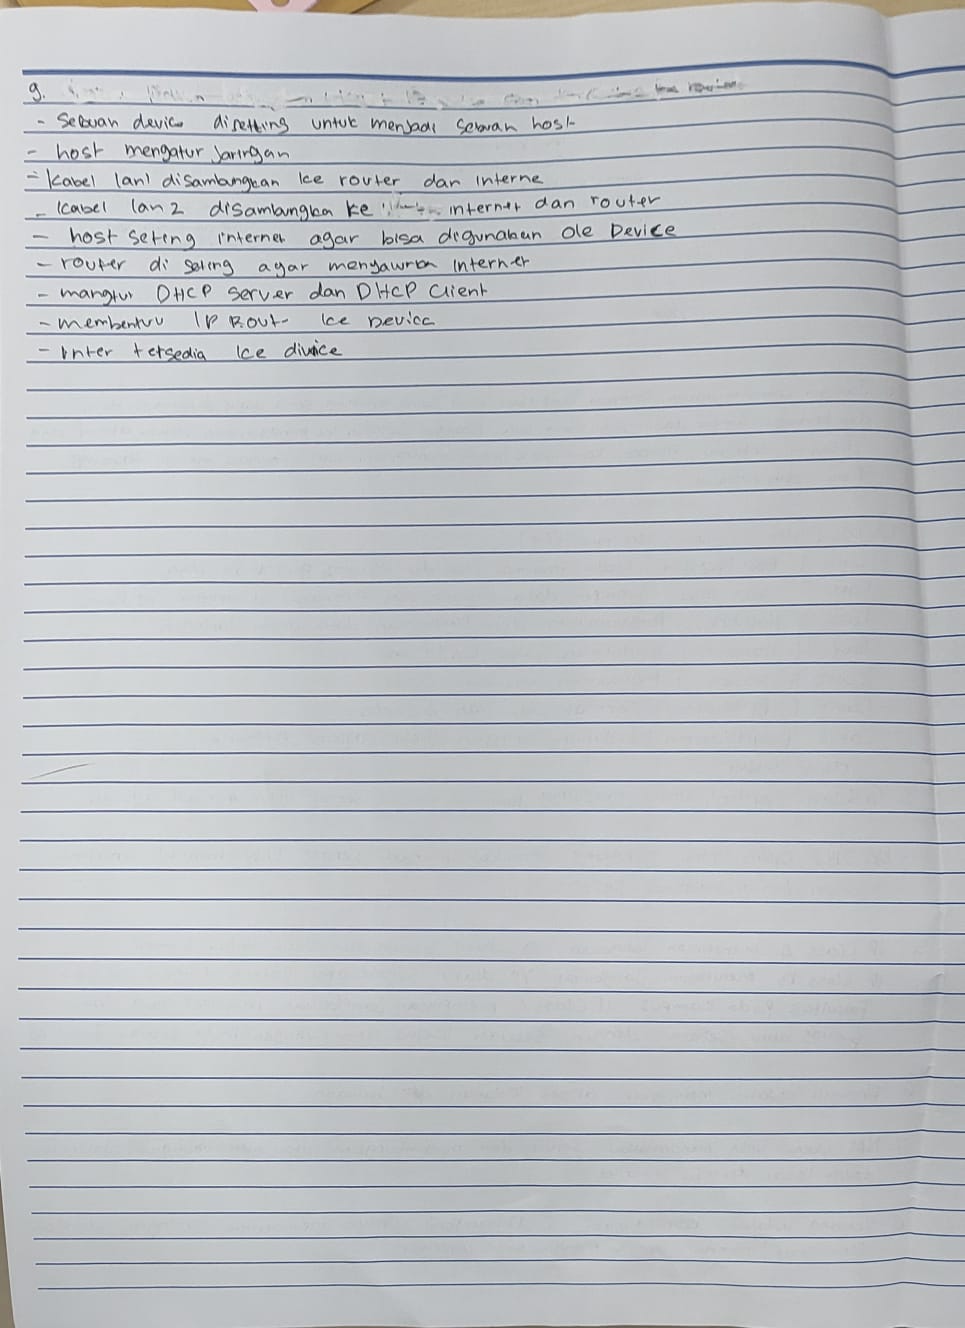 9.
- Sebuah device disetting untuk menjadi sebuah host
- host mengatur jaringan
- Kabel lan1 disambungkan ke router dan interne
- Kabel lan 2 disambungka ke internet dan router
- host seting internet agar bisa digunakan ole Device
- router di seting agar menyawrkn internet
- mangtur DHCP server dan DHCP Client
- membentuu IP Rout- ke Device
- Inter tersedia ke divice